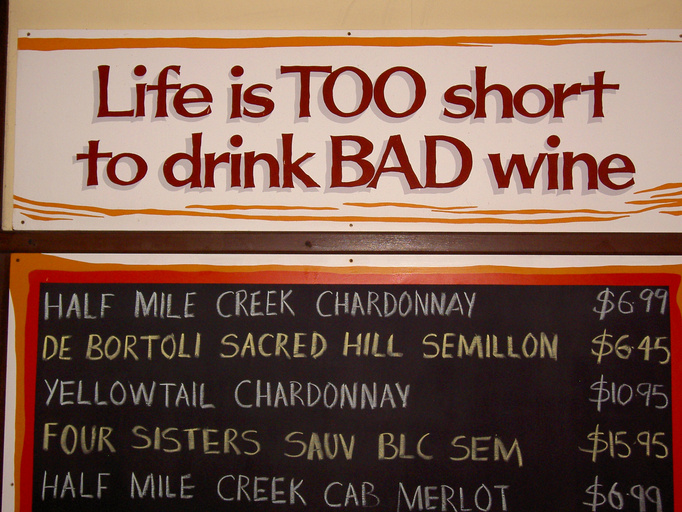 Life is TOO short
to drink BAD wine
HALF MILE CREEK CHARDONNAY $6.99
DE BORTOLI SACRED HILL SEMILLON $6.45
YELLOWTAIL CHARDONNAY $10.95
FOUR SISTERS SAUV BLC SEM $15.95
HALF MILE CREEK CAB MERLOT $6.99